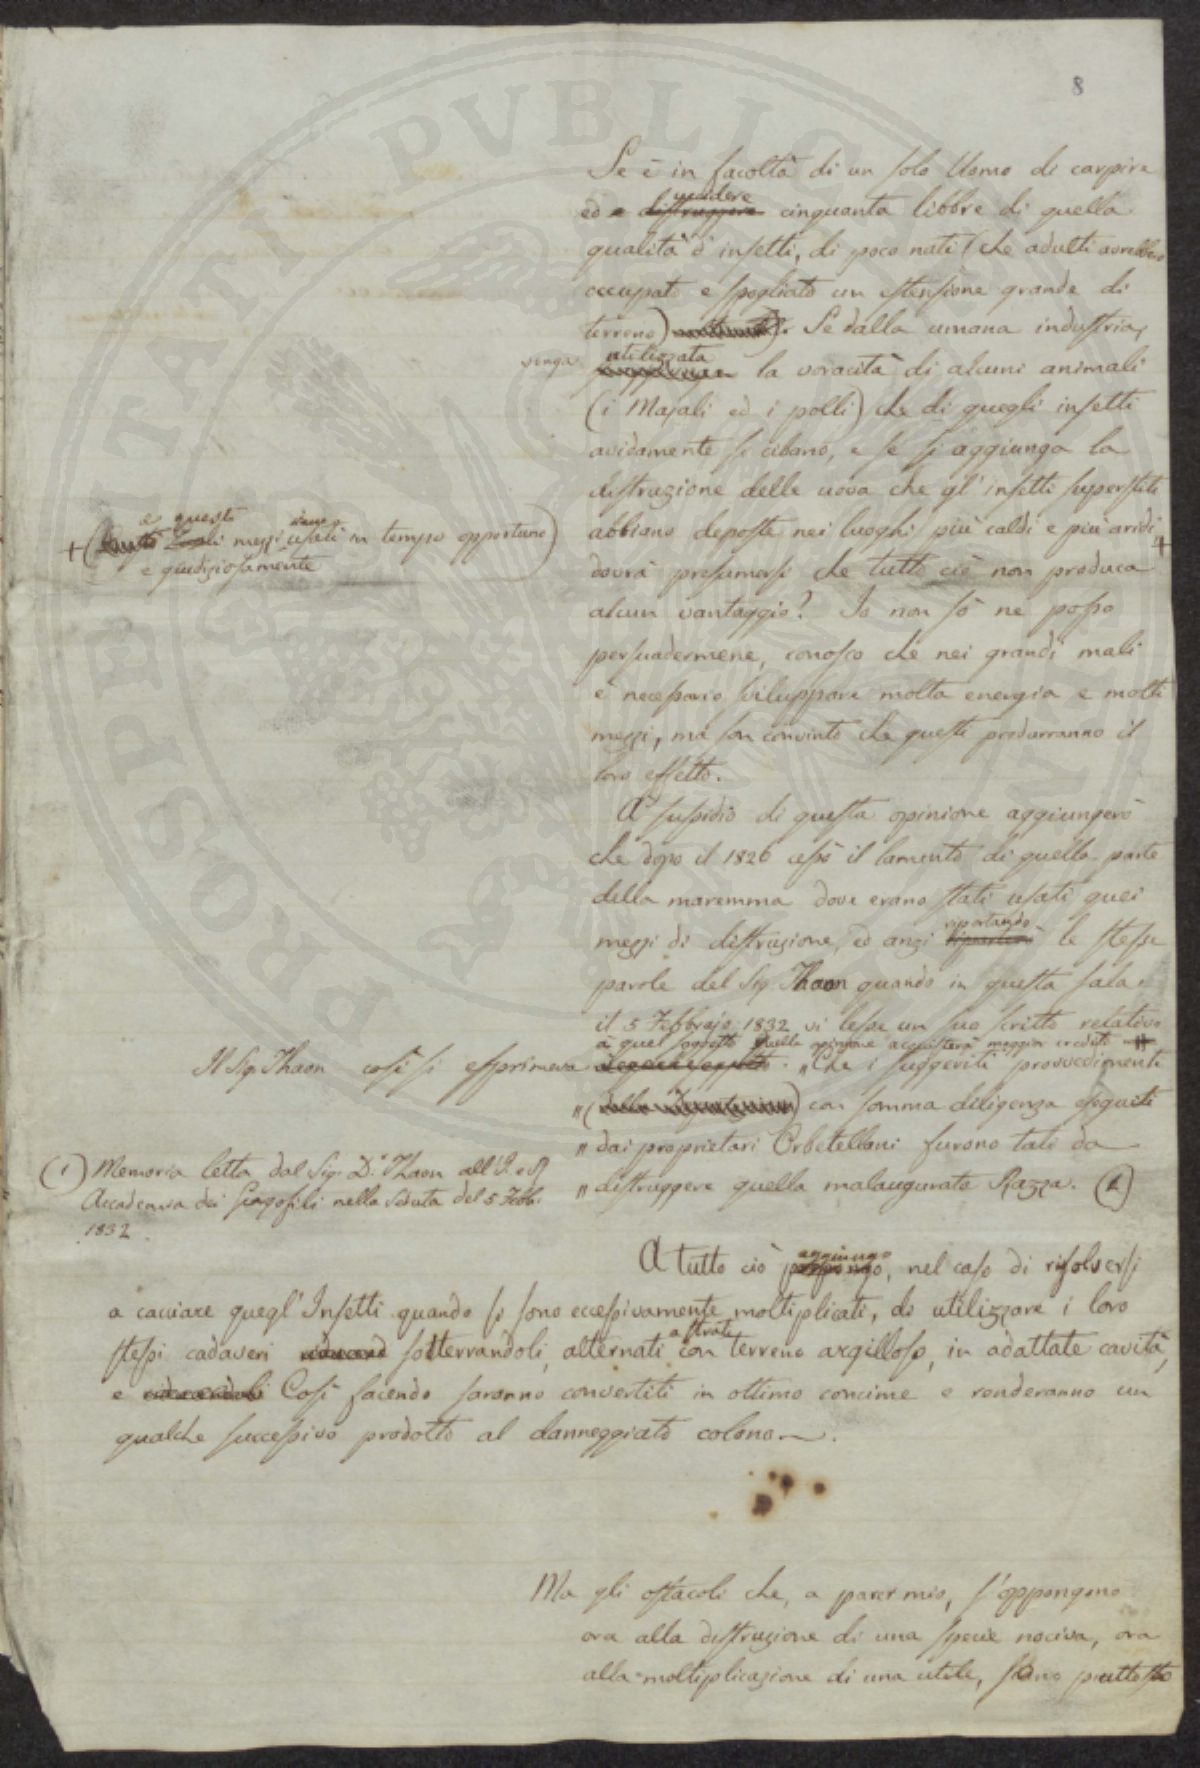 8
Se è in facoltà di un solo Uomo di carpire
uccidere
ed e distruggere cinquanta libbre di quella
qualità d'insetti, di poco nati (che adulti avrebbero
occupato e spogliato un estensione grande di
terreno) Se dalla umana industria,
venga utilizzata
la voracità di alcuni animali
(i Majali ed i polli) che di quegli insetti
avidamente si cibano, e se si aggiunga la
distruzione delle uova che gl'insetti superstiti
abbiano deposte nei luoghi più caldi e più aridi +
e questi siano
+ ( mezzi usati in tempo opportuno)
e giudiziosamente
dovrà presumersi che tutto ciò non produca
alcun vantaggio? Io non sò ne posso
persuadermene, conosco che nei grandi mali
è necessario sviluppare molta energia e molti
mezzi, ma son convinto che questi produrranno il
loro effetto.
A sussidio di questa opinione aggiungerò
che dopo il 1826 cessò il lamento di quella parte
della maremma dove erano stati usati quei
riportando
mezzi di distruzione, ed anzi riporterò le stesse
parole del Sig. Thaon quando in questa sala
il 5 Febbrajo 1832 vi lesse un suo scritto relativo
a quel soggetto quella opinione acquisterà maggior credito
Il Sig. Thaon così si esprimeva „ Che i suggeriti provvedimenti
„ ( ) con somma diligenza eseguiti
„ dai proprietari Orbetellani furono tali da
„ distruggere quella malaugurata Razza. (1)
(1) Memoria letta dal Sig. D.r Thaon all'I. e R.
Accademia dei Georgofili nella Seduta del 5 Febb.
1832.
aggiungo
A tutto ciò propongo, nel caso di risolversi
a cacciare quegl'Insetti quando si sono eccessivamente moltiplicati, di utilizzare i loro
a strati
stessi cadaveri sotterrandoli, alternati con terreno argilloso, in adattate cavità,
e riducendoli Così facendo saranno convertiti in ottimo concime e renderanno un
qualche successivo prodotto al danneggiato colono.
Ma gli ostacoli che, a parer mio, s'oppongono
ora alla distruzione di una specie nociva, ora
alla moltiplicazione di una utile, sono piuttosto